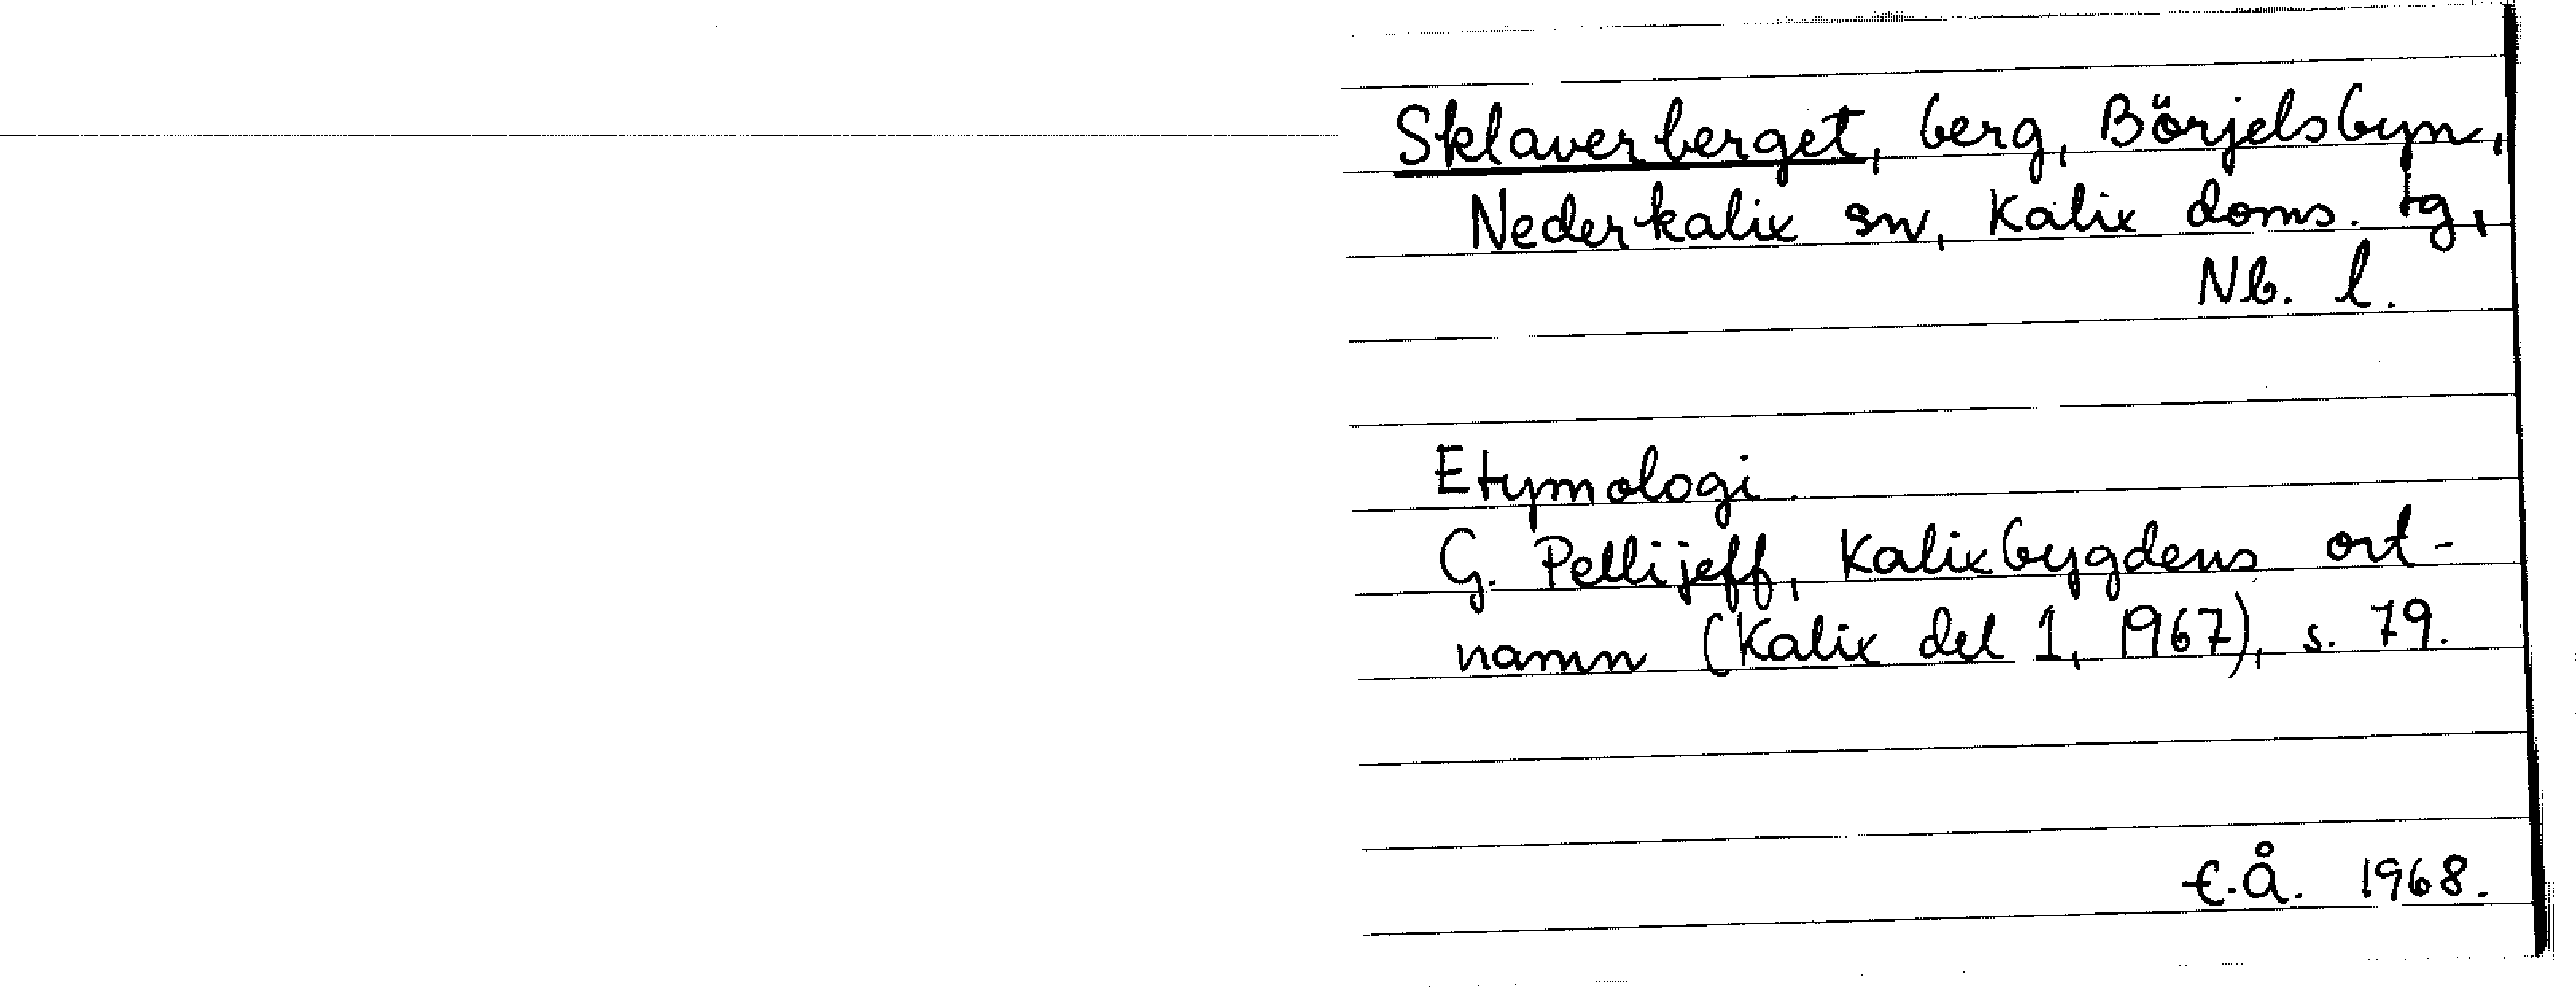 Sklaverberget, berg, Börjelsbyn,
Nederkalix sn, Kalix doms. tg,
Nb. l.
Etymologi
G. Pellijeff, Kalixbygdens ort-
namn (Kalix del 1, 1967), s. 79.
E.Å. 1968.